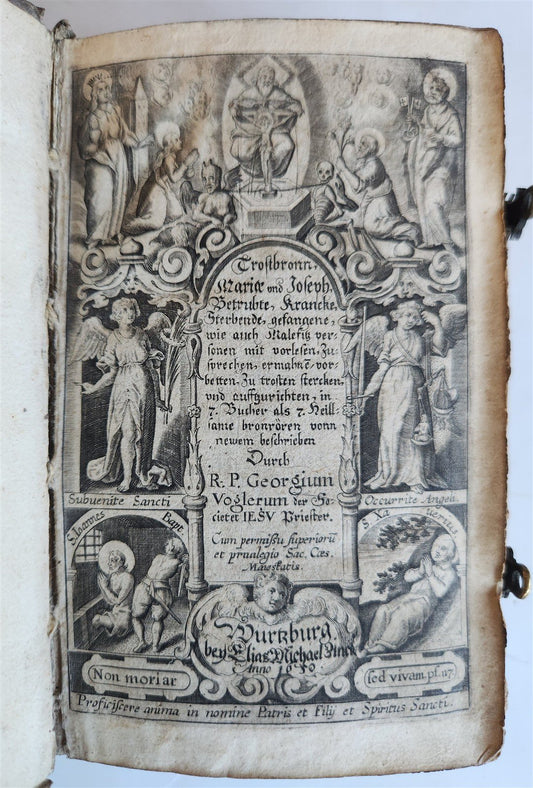 Trostbronn,
Mariæ und Joseph,
Betrubte, Krancke,
Sterbende, gefangene,
wie auch Malefitz per-
sonen mit vorlesen, Zu-
sprechen, ermahnē, vor-
betten, Zu trosten stercken,
und auffzurichten, in
7. Bucher als 7. Heill-
same bronrören vonn
newem beschrieben
Durch
R. P. Georgium
Voglerum der So-
cietet IESV Priester.
Cum permissu superiorū
et privilegio Sac. Cæs.
Maiestatis.
Subvenite Sancti
Occurrite Angeli
S. Ioannes Bapt.
S. Xaverius
Wurtzburg
bey Elias Michael Zinck
Anno 1650
Non moriar
sed vivam. ps. 117
Proficiscere anima in nomine Patris et Filij et Spiritus Sancti.